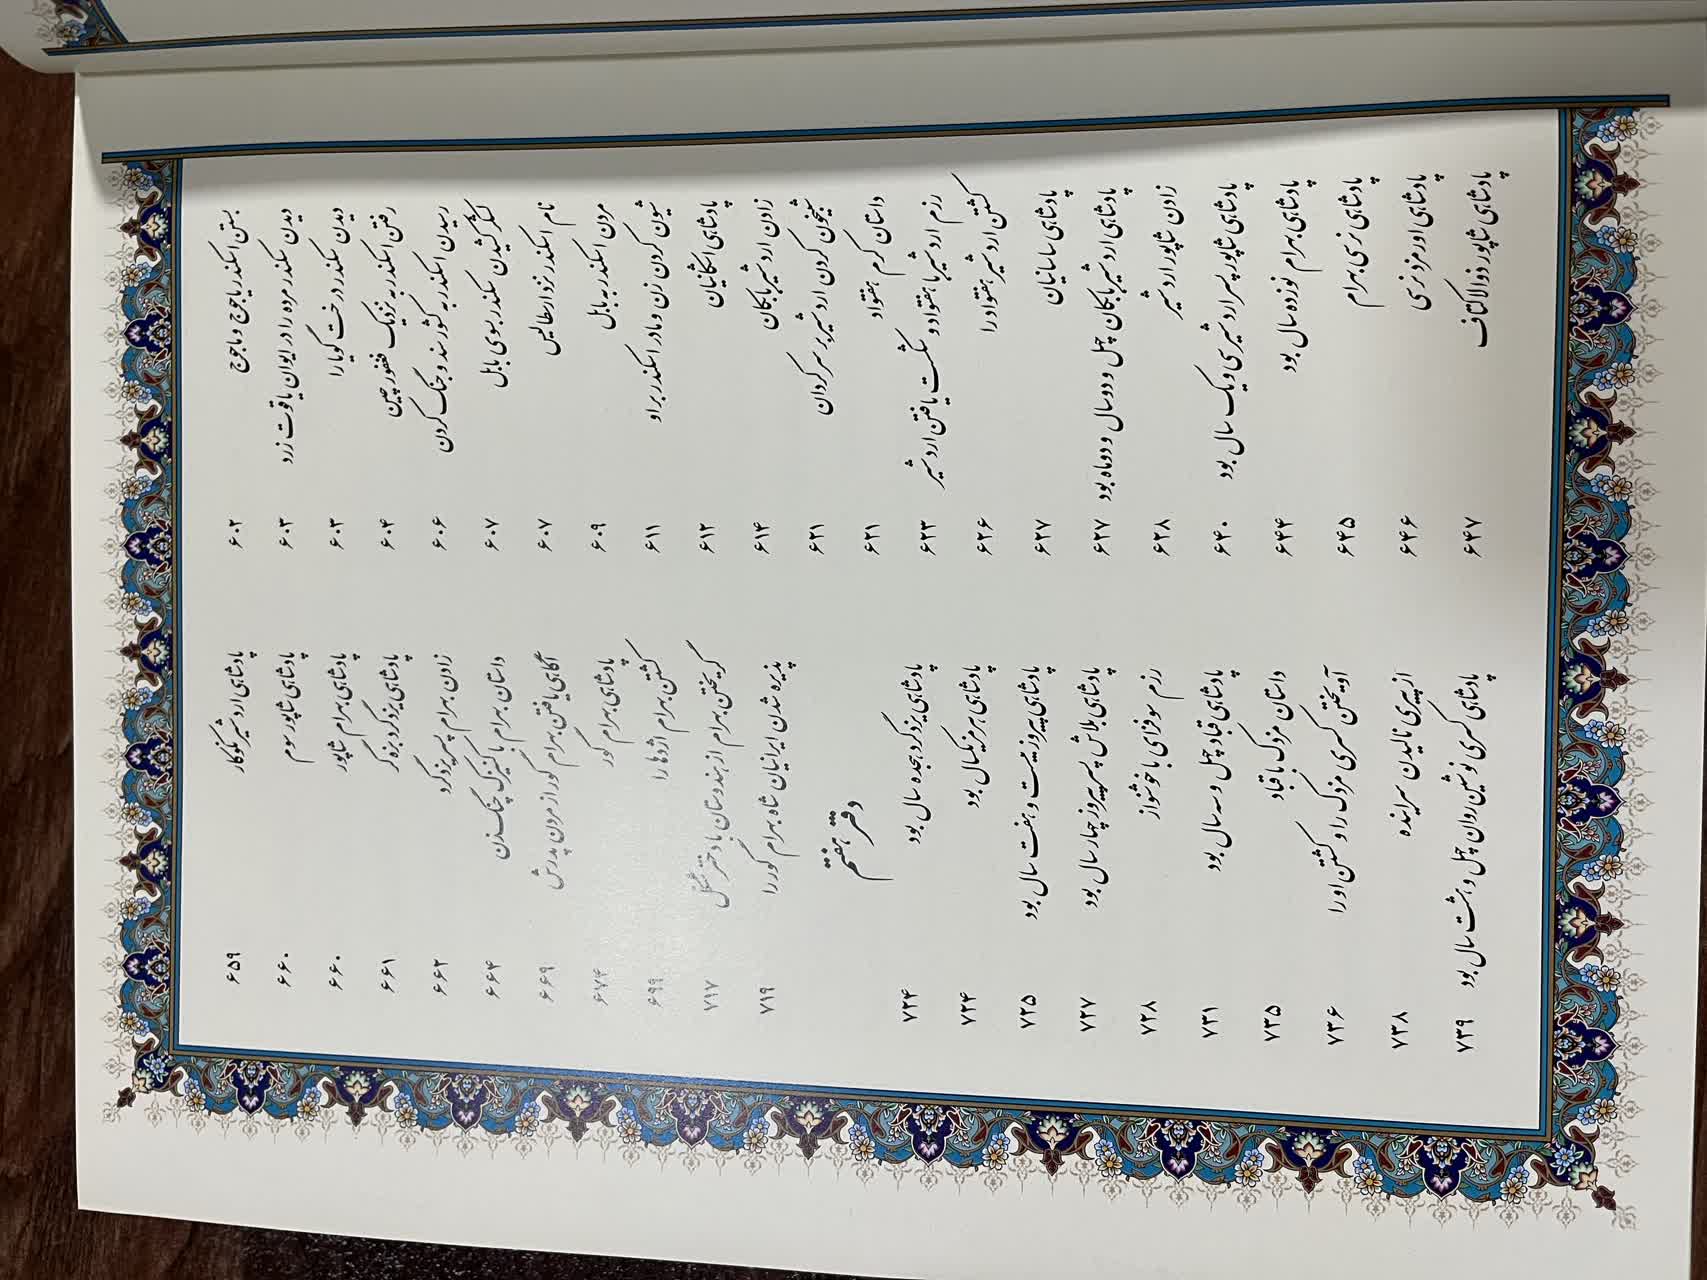 بستن اسکندر یاجوج و ماجوج ۶۰۲
دیدن سکندر مرده را در ایوان یاقوت زرد ۶۰۳
دیدن سکندر درخت گویا را ۶۰۳
رفتن اسکندر به نزدیک فغفور چین ۶۰۴
رسیدن اسکندر به کشور سند و جنگ کردن ۶۰۶
لشکر کشیدن سکندر سوی بابل ۶۰۷
نام اسکندر نزد ارسطالیس ۶۰۷
مردن اسکندر به بابل ۶۰۹
شیون کردن زن و مادر اسکندر بر او ۶۱۱
پادشاهی اشکانیان ۶۱۲
زادن اردشیر بابکان ۶۱۴
شبیخون کردن اردشیر بر سر کردان ۶۲۱
داستان کرم هفتواد ۶۲۱
رزم اردشیر با هفتواد و شکست یافتن اردشیر ۶۲۳
کشتن اردشیر هفتواد را ۶۲۶
پادشاهی ساسانیان ۶۲۷
پادشاهی اردشیر بابکان چهل و دو سال و دو ماه بود ۶۲۷
زادن شاپور اردشیر ۶۲۸
پادشاهی شاپور پسر اردشیر سی و یک سال بود ۶۴۰
پادشاهی بهرام نوزده سال بود ۶۴۴
پادشاهی نرسی بهرام ۶۴۵
پادشاهی اورمزد نرسی ۶۴۶
پادشاهی شاپور ذوالاکتاف ۶۴۷
پادشاهی اردشیر نکوکار ۶۵۹
پادشاهی شاپور سوم ۶۶۰
پادشاهی بهرام شاپور ۶۶۰
پادشاهی یزدگرد بزه گر ۶۶۱
زادن بهرام پسر یزدگرد ۶۶۲
داستان بهرام با کنیزک چنگ زن ۶۶۴
آگاهی یافتن بهرام گور از مردن پدرش ۶۶۹
پادشاهی بهرام گور ۶۷۴
کشتن بهرام اژدها را ۶۹۹
گریختن بهرام از هندوستان با دختر شنگل ۷۱۷
پذیره شدن ایرانیان شاه بهرام گور را ۷۱۹
دفتر هفتم
پادشاهی یزدگرد هجده سال بود ۷۲۴
پادشاهی هرمز یکسال بود ۷۲۴
پادشاهی پیروز بیست و هفت سال بود ۷۲۵
پادشاهی بلاش پسر پیروز چهار سال بود ۷۲۷
رزم سوفزای با خوشنواز ۷۲۸
پادشاهی قباد چهل و سه سال بود ۷۳۱
داستان مزدک با قباد ۷۳۵
آویختن کسری مزدک را و کشتن او را ۷۳۶
از پیری نالیدن سراینده ۷۳۸
پادشاهی کسری نوشین روان چهل و هشت سال بود ۷۳۹